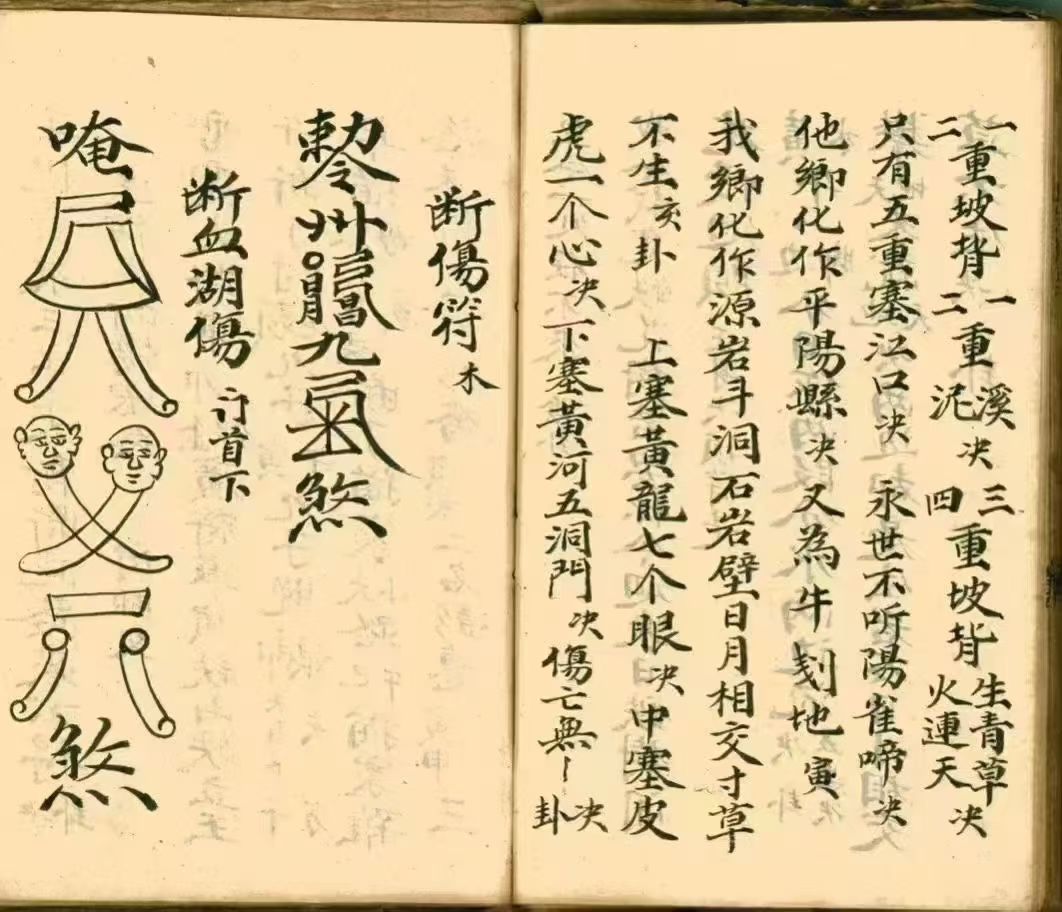 一二重坡背 一二重溪泥决 三四重坡背生青草火連天决
只有五重塞江口决 永世不听陽雀啼决
他鄉化作平陽縣决 又為牛剗地寅
我鄉化作源岩斗洞石岩壁日月相交寸草
不生亥卦 上塞黃龍七个眼决中塞皮
虎一个心决下塞黃河五洞門决傷亡無卦决
断傷符 木
勅令 九 煞
断血湖傷 首下
唵 煞